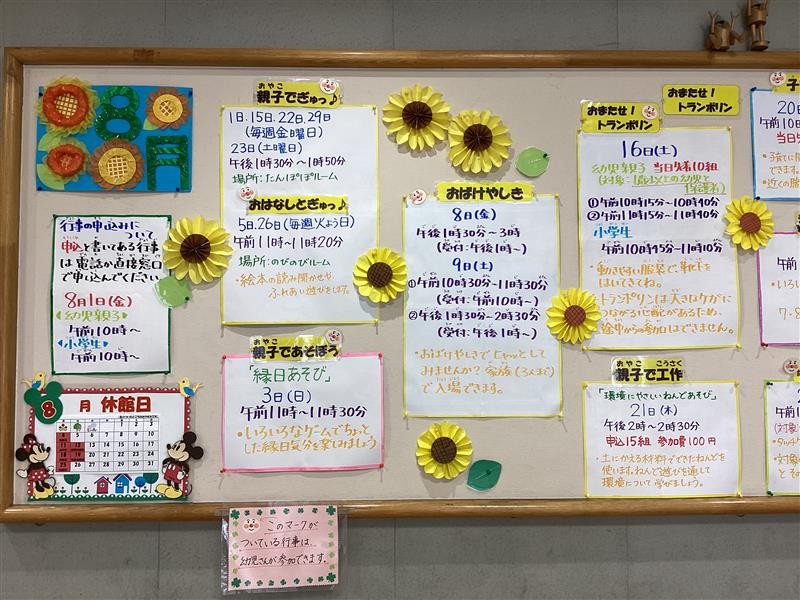 8月
行事の申込みに
ついて
申込と書いてある行事
は電話か直接窓口
で申し込んでください
8月1日(金)
幼児親子
午前10時~
小学生
午前10時~
8月 休館日
親子でぎゅっ♪
おやこ
1日.15日.22日.29日
(毎週金曜日)
23日(土曜日)
午後1時30分~1時50分
場所:たんぽぽルーム
おはなしとぎゅっ♪
5日.26日(毎週火よう日)
午前11時~11時20分
場所:のびのびルーム
・絵本の読み聞かせや、
ふれあい遊びをします。
おやこ
親子であそぼう
「縁日あそび」
3日(日)
午前11時~11時30分
・いろいろなゲームでちょっと
した縁日気分を楽しみましょう
このマークが
ついている行事は、
幼児さんが参加できます。
おばけやしき
8日(金)
午後1時30分~3時
(受付:午後1時~)
9日(土)
①午前10時30分~11時30分
(受付:午前10時~)
②午後1時30分~2時30分
(受付:午後1時~)
・おばけやしきでヒャッとして
みませんか?家族(3人まで)
で入場できます。
おまたせ!
トランポリン
おまたせ!
トランポリン
16日(土)
幼児親子 当日先着10組
(対象:1歳以上の幼児と
保護者)
①午前10時15分~10時40分
②午前11時15分~11時40分
小学生
午前10時45分~11時10分
・動きやすい服装で、靴下を
はいてきてね。
・トランポリンは大きなケガに
つながる可能があるため、
途中からの参加はできません。
おやこ こうさく
親子で工作
「環境にやさしいねんどあそび」
21日(木)
午後2時~2時30分
申込15組 参加費100円
・土にかえる材料でできたねんどを
使います。ねんど遊びを通して
環境について学びましょう。
20日
午前10時
当日先
・子育て
できます。
・近くの